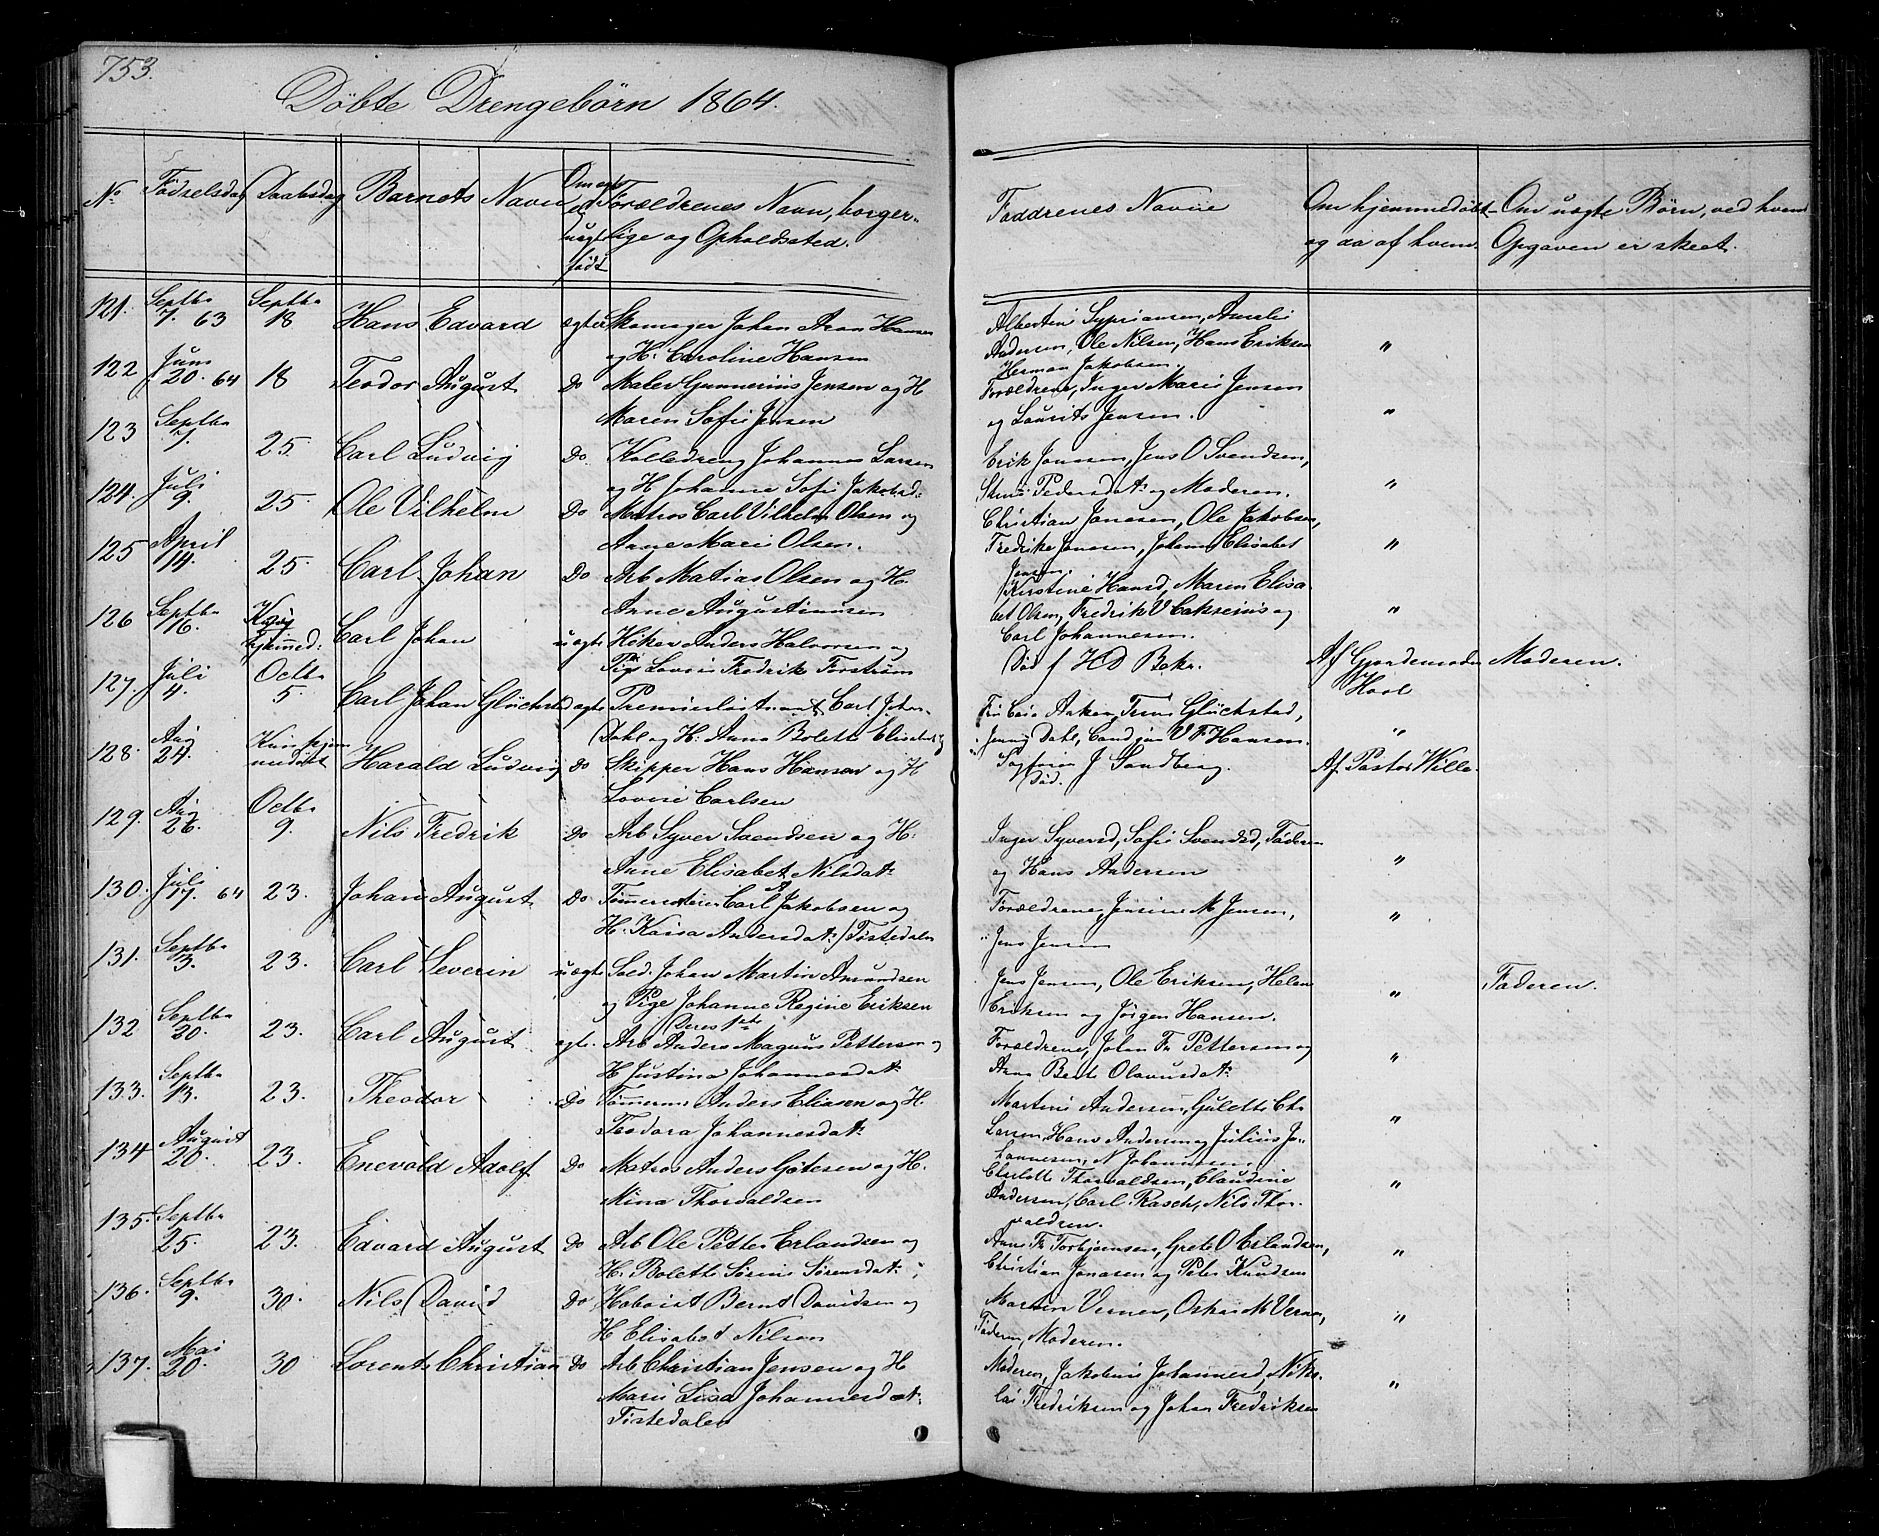 753.
Döbte Drengebörn 1864.
No Födselsdag Daabsdag Barnets Navn Om ægte ed uægt födt Forældrenes Navn, borgerlige og Opholdssted. Faddrenes Navne Om hjemmedöbt og da af hvem. Om uægte Börn, ved hvem Opgaven er skeet.
121. Septbr 7. 63 Septbr 18 Hans Edvard ægte Skomager Johan Aron Hansen
og H. Caroline Hansen
Albertine Sypriansen, Amalie
Andersen, Ole Nilsen, Hans Eriksen "
Herman Jakobsen.
122 Juni 20. 64 18 Teodor August Do Maler Gunnerius Jensen og H
Maren Sofie Jensen
Forældrene, Inger Marie Jensen
og Laurits Jensen. "
123 Septbr 7. 25. Carl Ludvig Do. Kolledreng Johannes Larsen
og H Johanne Sofie Jakobsd:
Erik Jonsen, Jens O Svendsen,
Stine Pedersdatr og Moderen. "
124. Juli 9. 25. Ole Vilhelm Do Matros Carl Vilhelm Olsen og
Anne Marie Olsen.
Christian Jonasen, Ole Jakobsen,
Fredrike Jonasen, Johanne Elisabet "
Jensen.
125 April 14. 25. Carl Johan Do Arb Matias Olsen og H.
Anne Augustinusen
Kirstine Hansd, Maren Elisa
bet Olsen, Fredrik V og "
Carl Johannesen.
126 Septbr 16. hjemmed: Carl Johan uægte Höker Anders Halvorsen og
Pige Lovise Fredrik Forström
Död f HD Bekr. Af Gjordemoder Moderen.
Hool
127. Juli 4. Octbr 5 Carl Johan Glückstad ægte Premierlöitnant Carl Johan
Dahl og H. Anna Bolette Elisabet
Anker, Frue Glückstad,
Jenny Dahl, Cand jur V F Hansen. "
Sagförer J Sandberg.
128. Aug 24. Kun hjemmedöbt Harald Ludvig Do Skipper Hans Hansen og H
Lovise Carlsen
Död. Af Pastor Wille.
129. Aug 26. Octbr 9. Nils Fredrik Do Arb Syver Svendsen og H.
Anne Elisabet Nilsdatr
Inger Syversd, Sofie Svendsd, Faderen
og Hans Andersen "
130. Juli 17. 64 23. Johan August Do Carl Jakobsen og
H. Kaisa Andersdatr / Tistedalen
Forældrene, Jensine M Jensen,
Jens Jensen "
131. Septbr 3. 23. Carl Severin uægte Sold. Johan Martin Amundsen
og Pige Johanne Regine Eriksen
Deres 1ste
Jens Jensen, Ole Eriksen, Helene
Eriksen og Jörgen Hansen. " Faderen.
132 Septbr 20. 23. Carl August ægte. Arb Anders Magnus Pettersen og
H Justina Johannesdatr
Forældrene, Johan Fr Pettersen og
Ane Berte Olavusdatr "
133. Septbr 13. 23. Theodor Do Anders Eliasen og H.
Teodora Johannesdatr
Martine Andersen, Gulette Chr
Larsen, Hans Andersen og Julius Jo- "
hannesen, N Johannesen.
134 August 20. 23. Enevold Adolf Do Matros Anders Götesen og H.
Mina Thorvaldsen
Charlotte Thorvaldsen, Claudine
Andersen, Carl Rasch, Nils Thor- "
valdsen.
135. Septbr 25. 23. Edvard August Do Arb Ole Petter Erlandsen og
H. Bolette Sörine Sörensdatr
Ane Fr Torbjörnsen, Grete O Erlandsen,
Christian Jonasen og Peter Knudsen "
136. Septbr 9. 30. Nils David Do Hoboist Bernt Davidsen og
H Elisabet Nilsen
Martin Verner, Oskar M Verner,
Faderen, Moderen. "
137. Mai 20. 30 Lorents Christian Do Arb Christian Jensen og H
Marie Lisa Johannesdatr
Tistedalen
Moderen, Jakobine Johannesd, Niko-
lai Fredriksen og Johan Fredriksen "